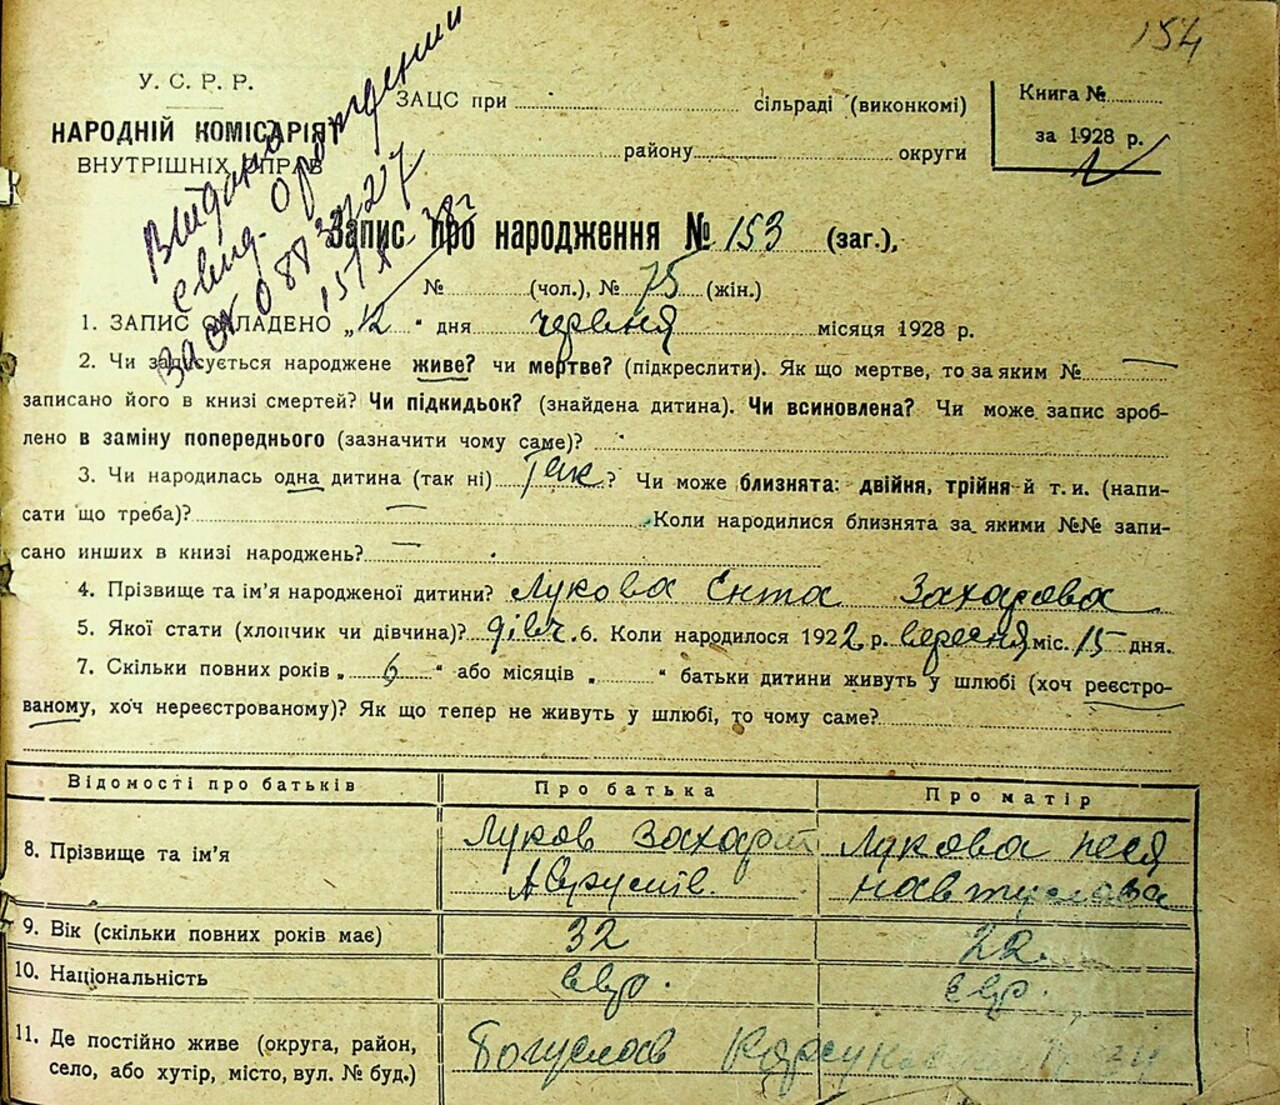 154
У. С. Р. Р.
НАРОДНІЙ КОМІСАРІЯТ
ВНУТРІШНІХ СПРАВ
ЗАЦС при сільраді (виконкомі)
району округи
Книга №
за 1928 р.
Выдано
свид. о рождении
Запис про народження № 153 (заг.),
№ (чол.), № 75 (жін.)
1. ЗАПИС СКЛАДЕНО „12“ дня червня місяця 1928 р.
2. Чи записується народжене живе? чи мертве? (підкреслити). Як що мертве, то за яким №
записано його в книзі смертей? Чи підкидьок? (знайдена дитина). Чи всиновлена? Чи може запис зроб-
лено в заміну попереднього (зазначити чому саме)?
3. Чи народилась одна дитина (так ні) Так? Чи може близнята: двійня, трійня й т. и. (напи-
сати що треба)? Коли народилися близнята за якими №№ запи-
сано инших в книзі народжень?
4. Прізвище та ім'я народженої дитини? Лукова Єнта Захарова
5. Якої стати (хлопчик чи дівчина)? дівч. 6. Коли народилося 1922 р. вересня міс. 15 дня.
7. Скільки повних років „ 6 “ або місяців „ “ батьки дитини живуть у шлюбі (хоч реєстро-
ваному, хоч нереєстрованому)? Як що тепер не живуть у шлюбі, то чому саме?
Відомості про батьків Про батька Про матір
8. Прізвище та ім'я Луков Захарій Лукова Песя
9. Вік (скільки повних років має) 32 22.
10. Національність євр. євр.
11. Де постійно живе (округа, район,
село, або хутір, місто, вул. № буд.) Богуслав